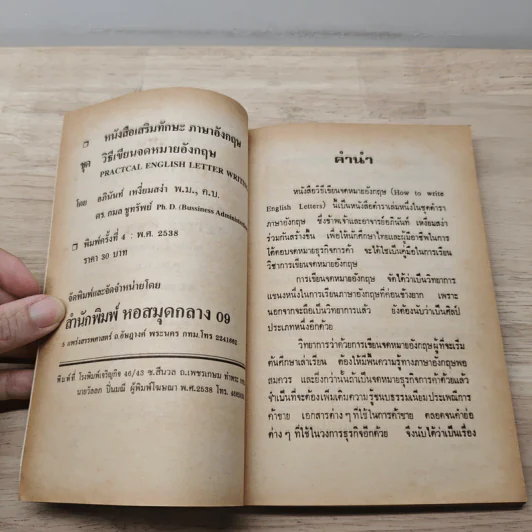 หนังสือเสริมทักษะ ภาษาอังกฤษ
ชุด วิธีเขียนจดหมายอังกฤษ
PRACTCAL ENGLISH LETTER WRITING
โดย อภินันท์ เหงี่ยมสง่า พ.บ., ค.บ.
ดร กมล ชูทรัพย์ Ph. D. (Bussiness Administration)
พิมพ์ครั้งที่ 4 : พ.ศ. 2538
ราคา 30 บาท
จัดพิมพ์และจัดจำหน่ายโดย
สำนักพิมพ์ หอสมุดกลาง 09
5 แพร่งสรรพศาสตร์ ถ.อัษฎางค์ พระนคร กทม. โทร
พิมพ์ที่ โรงพิมพ์เจริญกิจ 46/43 ซ.สีนวล ถ.เพชรเกษม
ผู้พิมพ์โฆษณา พ.ศ.2538 โทร.
คำนำ
หนังสือวิธีเขียนจดหมายอังกฤษ (How to write
English Letters) นี้เป็นหนังสือตำราเล่มหนึ่งในชุดตำรา
ภาษาอังกฤษ ซึ่งข้าพเจ้าและอาจารย์อภินันท์ เหงี่ยมสง่า
ร่วมกันสร้างขึ้น เพื่อให้นักศึกษาไทยและผู้มีอาชีพในการ
โต้ตอบจดหมายธุรกิจการค้า จะได้ใช้เป็นคู่มือในการเรียน
วิชาการเขียนจดหมายอังกฤษ
การเขียนจดหมายอังกฤษ จัดได้ว่าเป็นวิทยาการ
แขนงหนึ่งในการเรียนภาษาอังกฤษที่ค่อนข้างยาก เพราะ
นอกจากจะถือเป็นวิทยาการแล้ว ยังต้องนับว่าเป็นศิลป์
ประเภทหนึ่งอีกด้วย
วิทยาการว่าด้วยการเขียนจดหมายอังกฤษผู้ที่จะเริ่ม
ต้นศึกษาเล่าเรียน ต้องให้มีพื้นความรู้ทางภาษาอังกฤษพอ
สมควร และยิ่งกว่านั้นถ้าเป็นจดหมายธุรกิจการค้าด้วยแล้ว
จำเป็นที่จะต้องเพิ่มเติมความรู้ขนบธรรมเนียมประเพณีการ
ค้าขาย เอกสารต่าง ๆ ที่ใช้ในการค้าขาย ตลอดจนคำย่อ
ต่าง ๆ ที่ใช้ในวงการธุรกิจอีกด้วย จึงนับได้ว่าเป็นเรื่อง